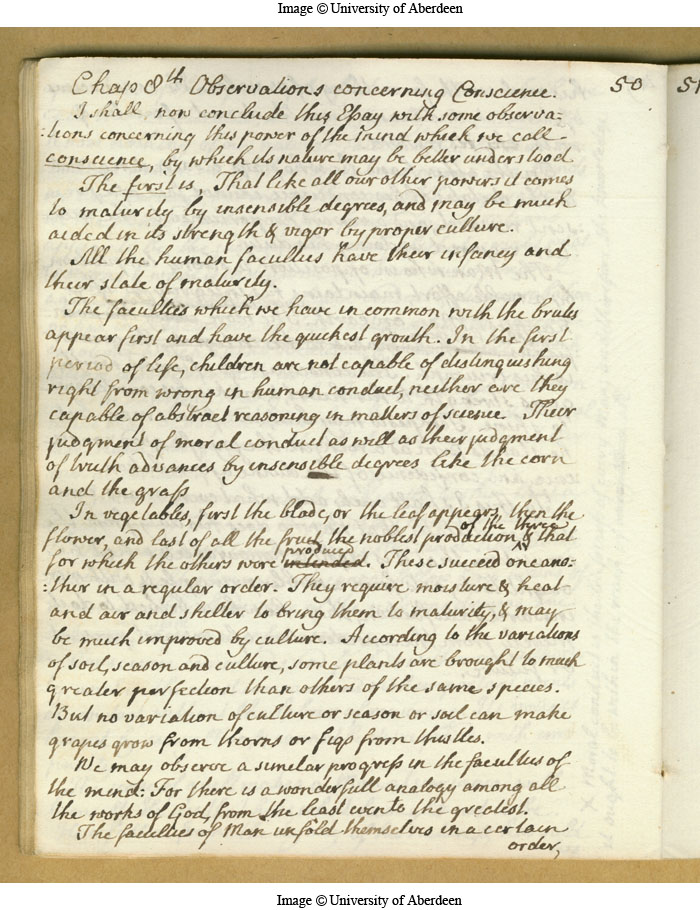 Image © University of Aberdeen
Chap 8th Observations concerning Conscience.
50
51
I shall now conclude this Essay with some observa:
:tions concerning this power of the mind which we call
conscience, by which its nature may be better understood
The first is, That like all our other powers it comes
to maturity by insensible degrees, and may be much
aided in its strength & vigor by proper culture.
All the human faculties have their infancy and
their state of maturity.
The faculties which we have in common with the brutes
appear first and have the quickest growth. In the first
period of life, children are not capable of distinguishing
right from wrong in human conduct, neither are they
capable of abstract reasoning in matters of science. Their
judgment of moral conduct as well as their judgment
of truth advances by insensible degrees like the corn
and the grass
In vegetables, first the blade, or the leaf appears, then the
flower, and last of all the fruit, the noblest production of the three & that
for which the others were intended produced. These succeed one ano:
:ther in a regular order. They require moisture & heat
and air and shelter to bring them to maturity, & may
be much improved by culture. According to the variations
of soil, season and culture, some plants are brought to much
greater perfection than others of the same species.
But no variation of culture or season or soil can make
grapes grow from thorns or figs from thistles.
We may observe a similar progress in the faculties of
the mind: For there is a wonderfull analogy among all
the works of God, from the least even to the greatest.
The faculties of Man unfold themselves in a certain
order,
Image © University of Aberdeen